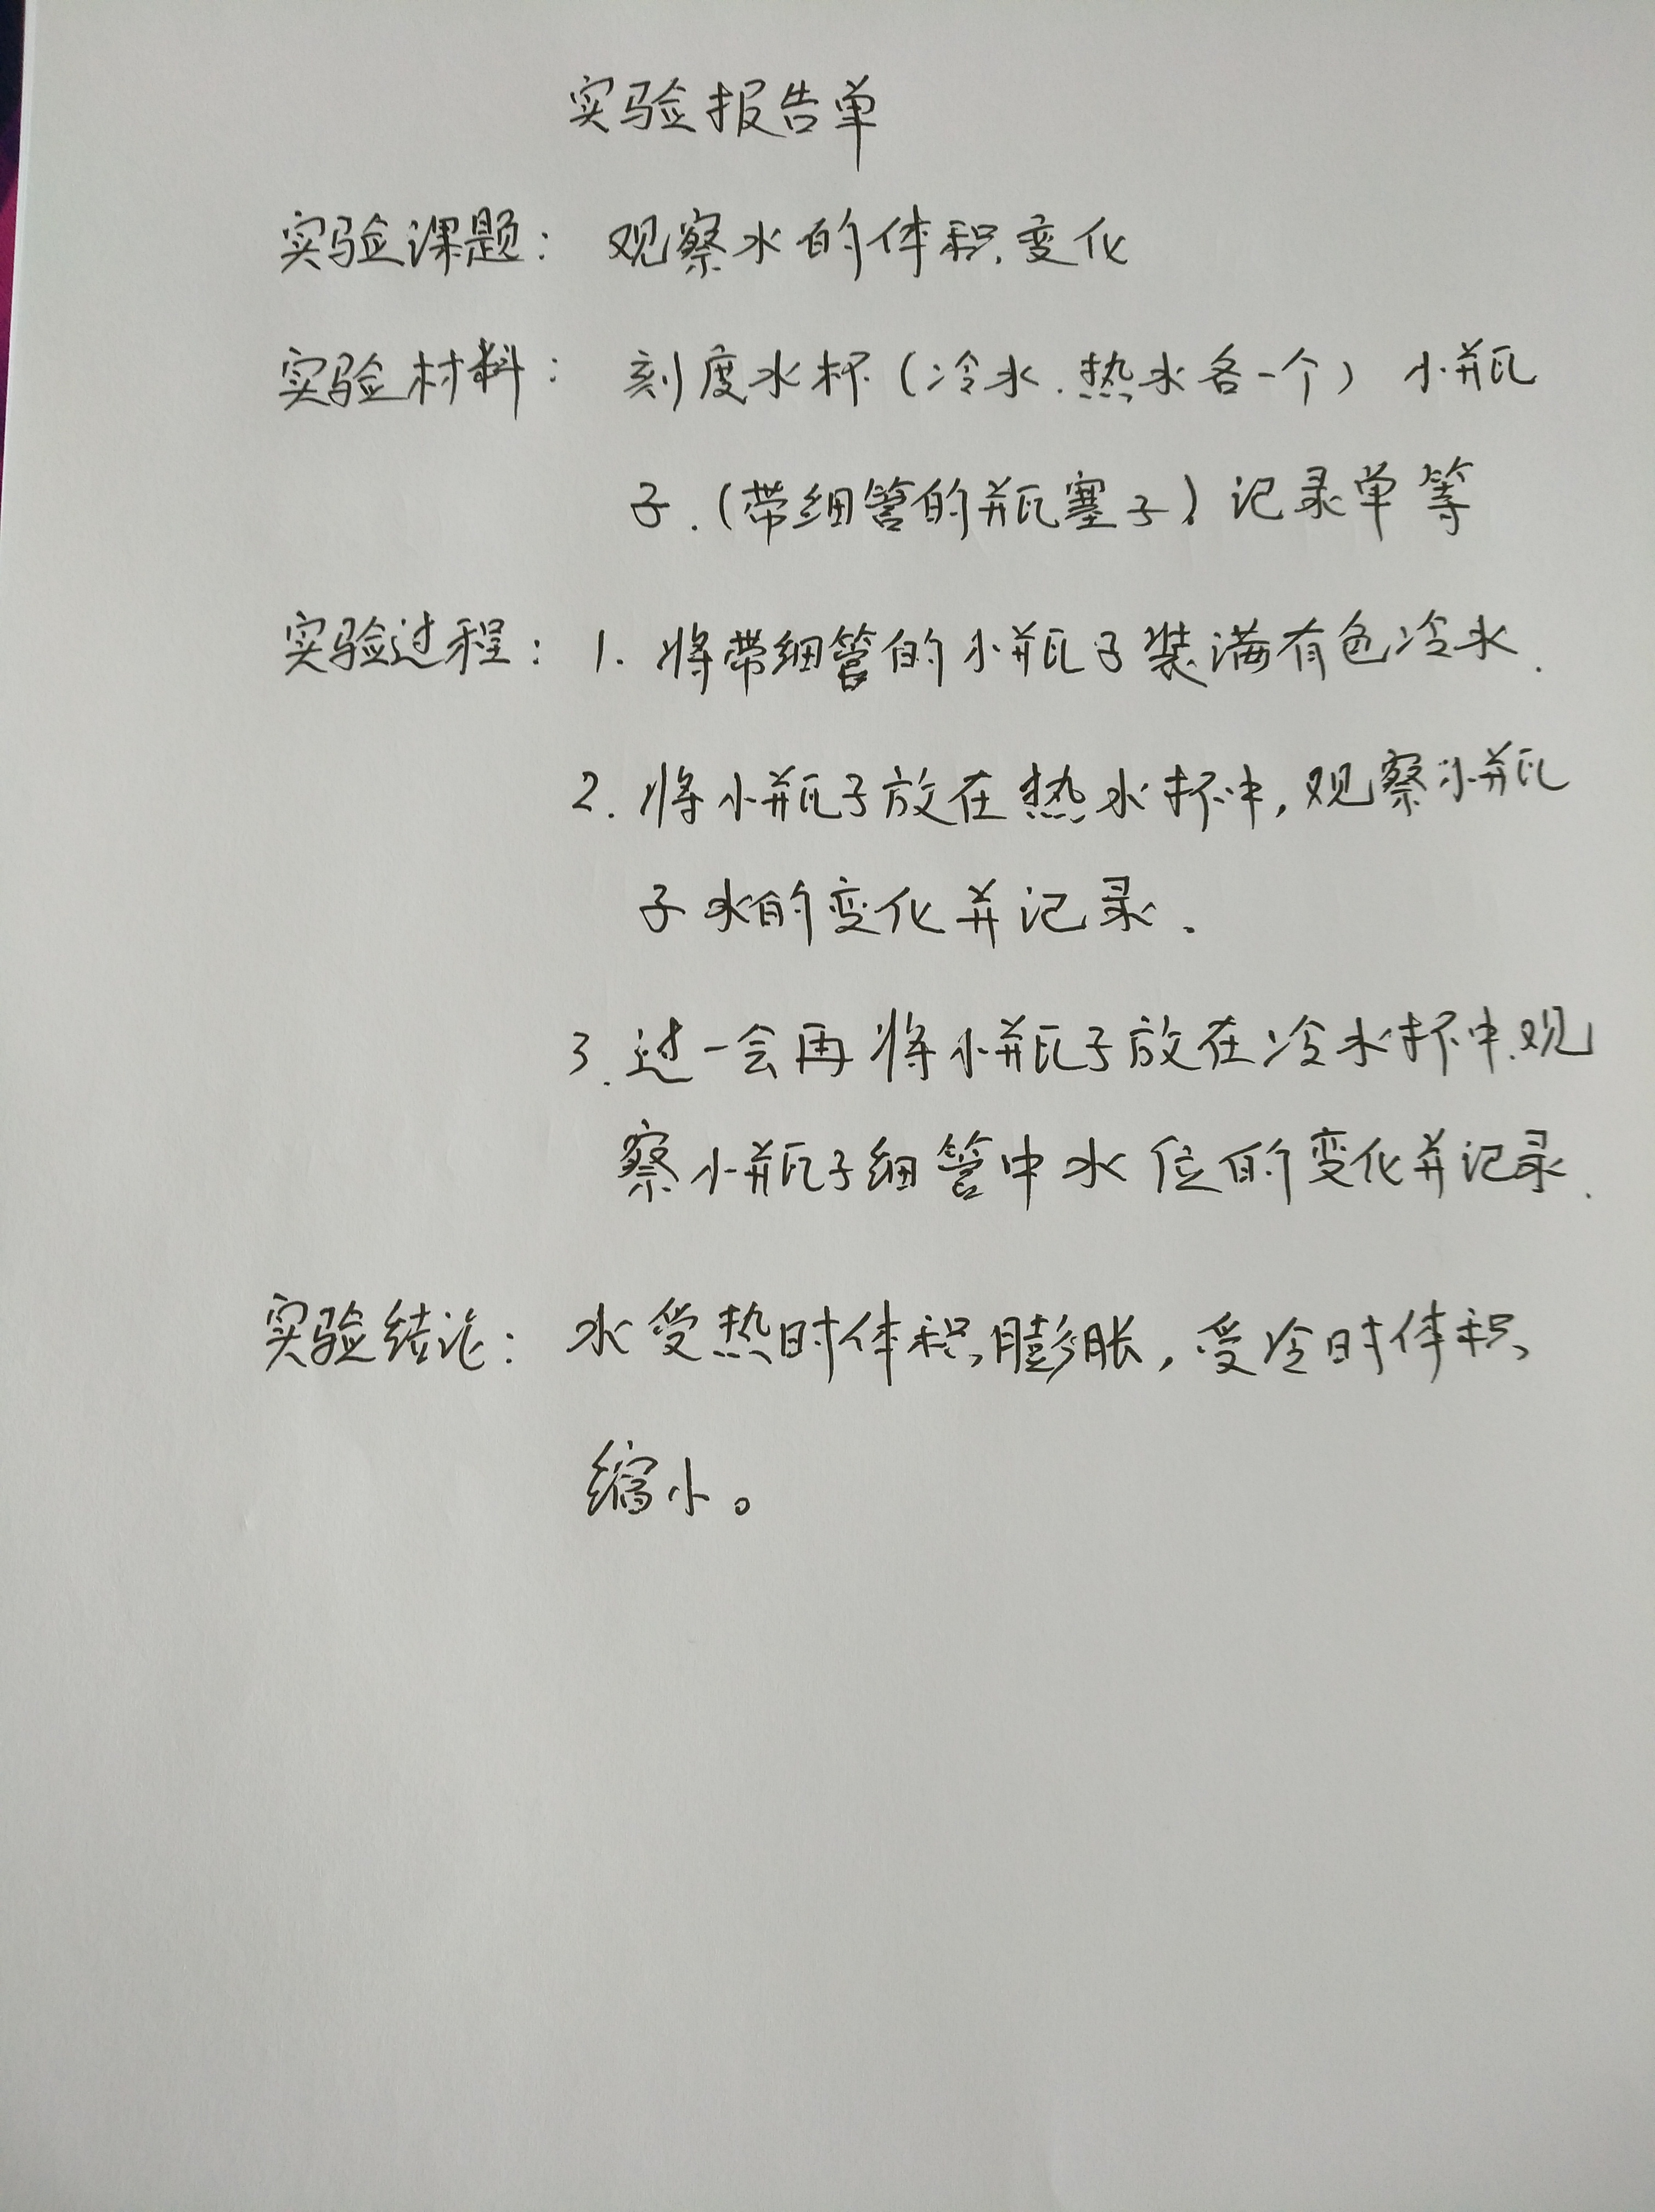 实验报告单
实验课题：观察水的体积变化
实验材料：刻度水杯（冷水.热水各一个）小瓶
子.（带细管的瓶塞子）.记录单等
实验过程：1.将带细管的小瓶子装满有色冷水.
2.将小瓶子放在热水杯中,观察小瓶
子水的变化并记录.
3.过一会再将小瓶子放在冷水杯中.观
察小瓶子细管中水位的变化并记录.
实验结论：水受热时体积膨胀,受冷时体积
缩小。